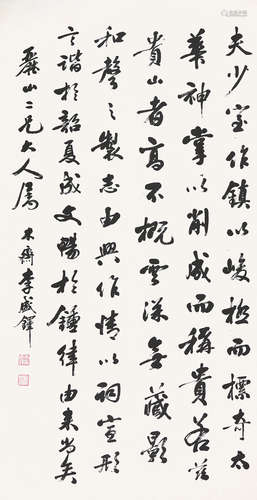 夫少室作鎮以峻極而標奇太
華神掌以削成而稱貴若茲
貴山者高不概雲深無藏影
和聲之製志由興作情以詞宣形
言諧於韶夏成文暢於鍾律由來尚矣
山二兄大人屬 木齋李盛鐸